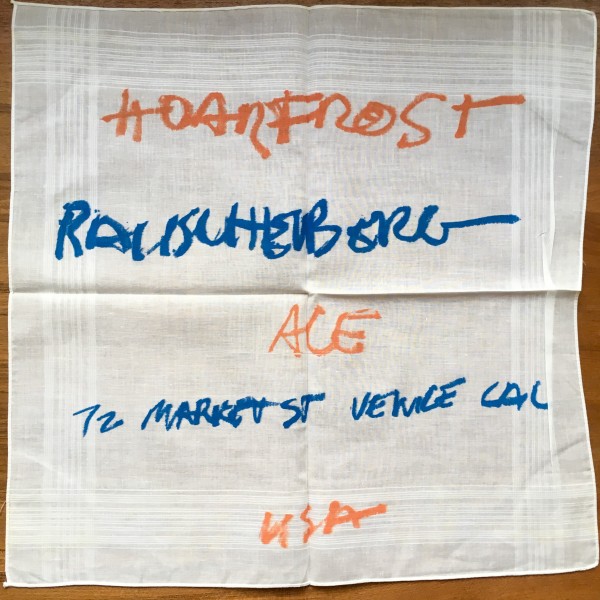 HOARFROST
RAUSCHENBERG
ACE
72 MARKET ST VENICE CAL
USA